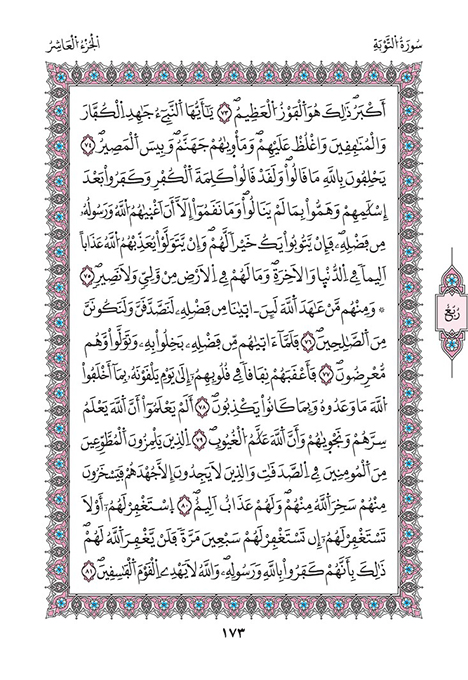 سُورَةُ التَّوْبَةِ
الجُزْءُ الْعَاشِرُ
أَكْبَرُۖ ذَٰلِكَ هُوَ اَلْفَوْزُ اُلْعَظِيمُۖ ٧٣ يَٰٓأَيُّهَا اَلنَّبِيٓءُ جَٰهِدِ اِلْكُفَّارَ
وَالْمُنَٰفِقِينَ وَاغْلُظْ عَلَيْهِمْۖ وَمَأْو۪يٰهُمْ جَهَنَّمُۖ وَبِيسَ اَلْمَصِيرُۖ ٧٤
يَحْلِفُونَ بِاللَّهِ مَا قَالُواْۖ وَلَقَدْ قَالُواْ كَلِمَةَ اَلْكُفْرِ وَكَفَرُواْ بَعْدَ
إِسْلَٰمِهِمْ وَهَمُّواْ بِمَا لَمْ يَنَالُواْۖ وَمَا نَقَمُوٓاْ إِلَّآ أَنْ أَغْن۪يٰهُمُ اُللَّهُ وَرَسُولُهُۥ
مِن فَضْلِهِۦۖ فَإِنْ يَّتُوبُواْ يَكُ خَيْراٗ لَّهُمْۖ وَإِنْ يَّتَوَلَّوْاْ يُعَذِّبْهُمُ اُللَّهُ عَذَاباً
اَلِيماٗ فِے اِلدُّنْي۪ا وَالَاخِرَةِۖ وَمَا لَهُمْ فِے اِلَارْضِ مِنْ وَّلِيّٖ وَلَا نَصِيرٖۖ ٧٥
۞ وَمِنْهُم مَّنْ عَٰهَدَ اَللَّهَ لَئِنَ اٰت۪يٰنَا مِن فَضْلِهِۦ لَنَصَّدَّقَنَّ وَلَنَكُونَنَّ
مِنَ اَلصَّٰلِحِينَۖ ٧٦ فَلَمَّآ ءَات۪يٰهُم مِّن فَضْلِهِۦ بَخِلُواْ بِهِۦ وَتَوَلَّواْ وَّهُم
مُّعْرِضُونَۖ ٧٧ فَأَعْقَبَهُمْ نِفَاقاٗ فِے قُلُوبِهِمُۥٓ إِلَىٰ يَوْمِ يَلْقَوْنَهُۥ بِمَآ أَخْلَفُواْ
اُللَّهَ مَا وَعَدُوهُ وَبِمَا كَانُواْ يَكْذِبُونَۖ ٧٨ أَلَمْ يَعْلَمُوٓاْ أَنَّ اَللَّهَ يَعْلَمُ
سِرَّهُمْ وَنَجْو۪يٰهُمْ وَأَنَّ اَللَّهَ عَلَّٰمُ اُلْغُيُوبِۖ ٧٩ اِلذِينَ يَلْمِزُونَ اَلْمُطَّوِّعِينَ
مِنَ اَلْمُومِنِينَ فِے اِلصَّدَقَٰتِ وَالذِينَ لَا يَجِدُونَ إِلَّا جُهْدَهُمْ فَيَسْخَرُونَ
مِنْهُمْ سَخِرَ اَللَّهُ مِنْهُمْۖ وَلَهُمْ عَذَابٌ اَلِيمٌۖ ٨٠ اِسْتَغْفِرْ لَهُمُۥٓ أَوْ لَا
تَسْتَغْفِرْ لَهُمُۥٓۖ إِن تَسْتَغْفِرْ لَهُمْ سَبْعِينَ مَرَّةٗ فَلَنْ يَّغْفِرَ اَللَّهُ لَهُمْۖ
ذَٰلِكَ بِأَنَّهُمْ كَفَرُواْ بِاللَّهِ وَرَسُولِهِۦۖ وَاللَّهُ لَا يَهْدِے اِلْقَوْمَ اَلْفَٰسِقِينَۖ ٨١
رُبُعْ
١٧٣